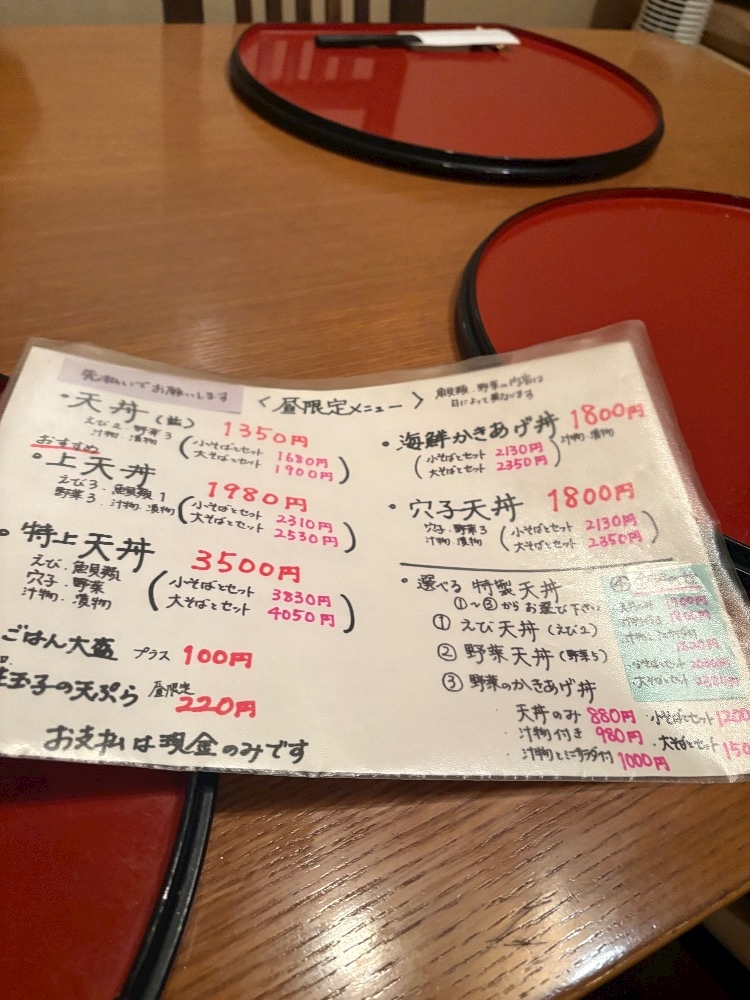 先払いでお願いします
〈昼限定メニュー〉
魚貝類・野菜の内容は
日によって異なります
・天丼(並) 1350円
えび2・野菜3
汁物・漬物
(小そばとセット 1680円
大そばとセット 1900円)
おすすめ
・上天丼 1980円
えび3・魚貝類1
野菜3・汁物・漬物
(小そばとセット 2310円
大そばとセット 2530円)
・特上天丼 3500円
えび・魚貝類
穴子・野菜
汁物・漬物
(小そばとセット 3830円
大そばとセット 4050円)
ごはん大盛 プラス 100円
玉子の天ぷら 昼限定
220円
お支払は現金のみです
・海鮮かきあげ丼 1800円
汁物・漬物
(小そばとセット 2130円
大そばとセット 2350円)
・穴子天丼 1800円
穴子・野菜3
汁物・漬物
(小そばとセット 2130円
大そばとセット 2350円)
・選べる 特製天丼
①〜③からお選び下さい
① えび天丼(えび2)
② 野菜天丼(野菜5)
③ 野菜のかきあげ丼
・天丼のみ 880円
・汁物付き 980円
・汁物とミニサラダ付 1000円
・小そばとセット 1200
・大そばとセット 150